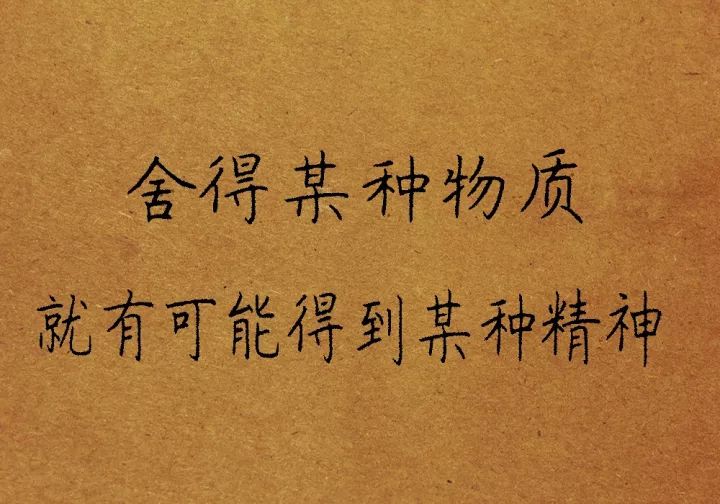 舍得某种物质
就有可能得到某种精神